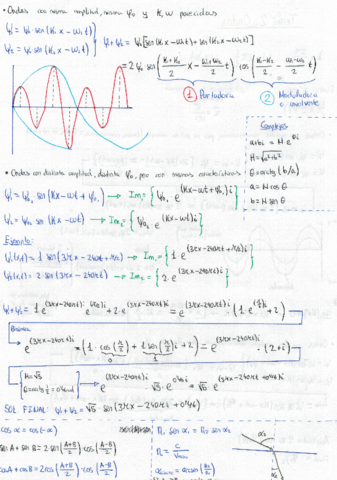 • Ondas con misma amplitud, misma φ₀ y K, ω parecidos
ψ₁ = ψ₀ sen(K₁x - ω₁t)
ψ₂ = ψ₀ sen(K₂x - ω₂t)
ψ₁ + ψ₂ = ψ₀[sen(K₁x - ω₁t) + sen(K₂x - ω₂t)]
= 2ψ₀ sen((K₁+K₂)/2 x - (ω₁+ω₂)/2 t) cos((K₁-K₂)/2 x - (ω₁-ω₂)/2 t)
① Portadora
② Moduladora o envolvente
Complejos
a+bi = M e^θi
M = √(a²+b²)
θ = arctg (b/a)
a = M cos θ
b = M sen θ
• Ondas con distinta amplitud, distinta φ₀, pero con mismas características
ψ₁ = ψ₀₁ sen(Kx - ωt + φ₀) → Im₁ = {ψ₀₁ e^(Kx-ωt+φ₀)i}
ψ₂ = ψ₀₂ sen(Kx - ωt) → Im₂ = {ψ₀₂ e^(Kx-ωt)i}
Ejemplo:
ψ₁(x,t) = 1 sen(3πx - 240πt + π/2) → Im₁ = {1 e^(3πx-240πt+π/2)i}
ψ₂(x,t) = 2 sen(3πx - 240πt) → Im₂ = {2 e^(3πx-240πt)i}
ψ₁+ψ₂ = 1·e^(3πx-240πt)i · e^(π/2)i + 2·e^(3πx-240πt)i = e^(3πx-240πt)i · (1·e^(π/2)i + 2)
e^(3πx-240πt)i · (1·cos(π/2) + 1 sen(π/2)i + 2) = e^(3πx-240πt)i · (2+i)
0 1
M = √5
e^(3πx-240πt)i · √5 · e^0'46i = √5 e^(3πx-240πt+0'46)i
SOL FINAL: ψ₁+ψ₂ = √5 · sen(3πx - 240πt + 0'46)
cos α = cos(-α)
sen A + sen B = 2 sen((A+B)/2) · cos((A-B)/2)
cos A + cos B = 2 cos((A+B)/2) · cos((A-B)/2)
n₁ sen α₁ = n₂ sen α₂